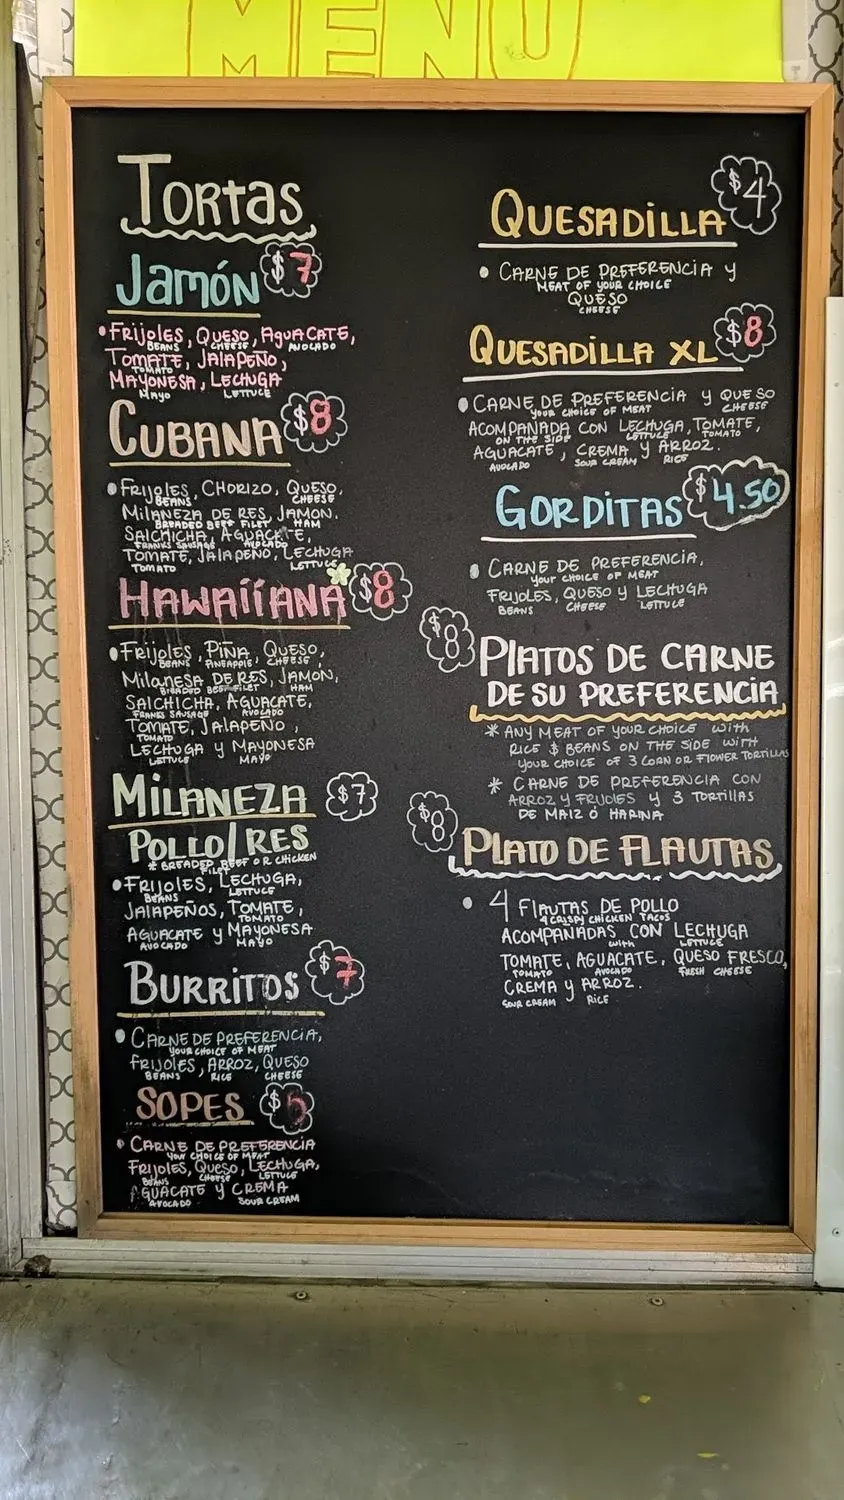 MENU
Tortas
Jamón $7
• Frijoles, Queso, Aguacate,
BEANS CHEESE AVOCADO
Tomate, Jalapeño,
TOMATO
Mayonesa, Lechuga
Mayo LETTUCE
CUBANA $8
• Frijoles, Chorizo, Queso,
BEANS CHEESE
Milaneza de res, Jamon,
BREADED BEEF FILET HAM
Salchicha, Aguacate,
FRANKS SAUSAGE AVOCADO
Tomate, Jalapeño, Lechuga
TOMATO LETTUCE
HAWAiiANA $8
• Frijoles, Piña, Queso,
BEANS PINEAPPLE CHEESE
Milanesa de res, Jamon,
BREADED BEEF FILET HAM
Salchicha, Aguacate,
FRANKS SAUSAGE AVOCADO
Tomate, Jalapeño,
TOMATO
Lechuga y Mayonesa
LETTUCE MAYO
MILANEZA $7
POLLO/RES
* BREADED BEEF OR CHICKEN
FILET
• Frijoles, Lechuga,
BEANS LETTUCE
Jalapeños, Tomate,
TOMATO
Aguacate y Mayonesa
AVOCADO MAYO
BURRITOS $7
• Carne de preferencia,
YOUR CHOICE OF MEAT
Frijoles, Arroz, Queso
BEANS RICE CHEESE
SOPES $5
• Carne de preferencia
YOUR CHOICE OF MEAT
Frijoles, Queso, Lechuga,
BEANS CHEESE LETTUCE
Aguacate y Crema
AVOCADO SOUR CREAM
QUESADILLA $4
• Carne de preferencia y
MEAT OF YOUR CHOICE
QUESO
CHEESE
QUESADILLA XL $8
• Carne de preferencia y queso
YOUR CHOICE OF MEAT CHEESE
Acompanada con lechuga, tomate,
ON THE SIDE LETTUCE TOMATO
Aguacate, crema y arroz.
AVOCADO SOUR CREAM RICE
GORDITAS $4.50
• Carne de preferencia,
YOUR CHOICE OF MEAT
Frijoles, queso y lechuga
BEANS CHEESE LETTUCE
$8 PLATOS DE CARNE
DE SU PREFERENCIA
* ANY MEAT OF YOUR CHOICE with
RICE $ BEANS ON THE SIDE WITH
YOUR CHOICE OF 3 CORN OR FLOWER TORTILLAS
* CARNE DE PREFERENCIA CON
ARROZ Y FRIJOLES y 3 TORTILLAS
DE MAIZ O HARINA
$8 PLATO DE FLAUTAS
• 4 FLAUTAS DE POLLO
4 CRISPY CHICKEN TACOS
ACOMPANADAS CON LECHUGA
with LETTUCE
TOMATE, AGUACATE, QUESO FRESCO,
TOMATO AVOCADO FRESH CHEESE
CREMA y ARROZ.
SOUR CREAM RICE